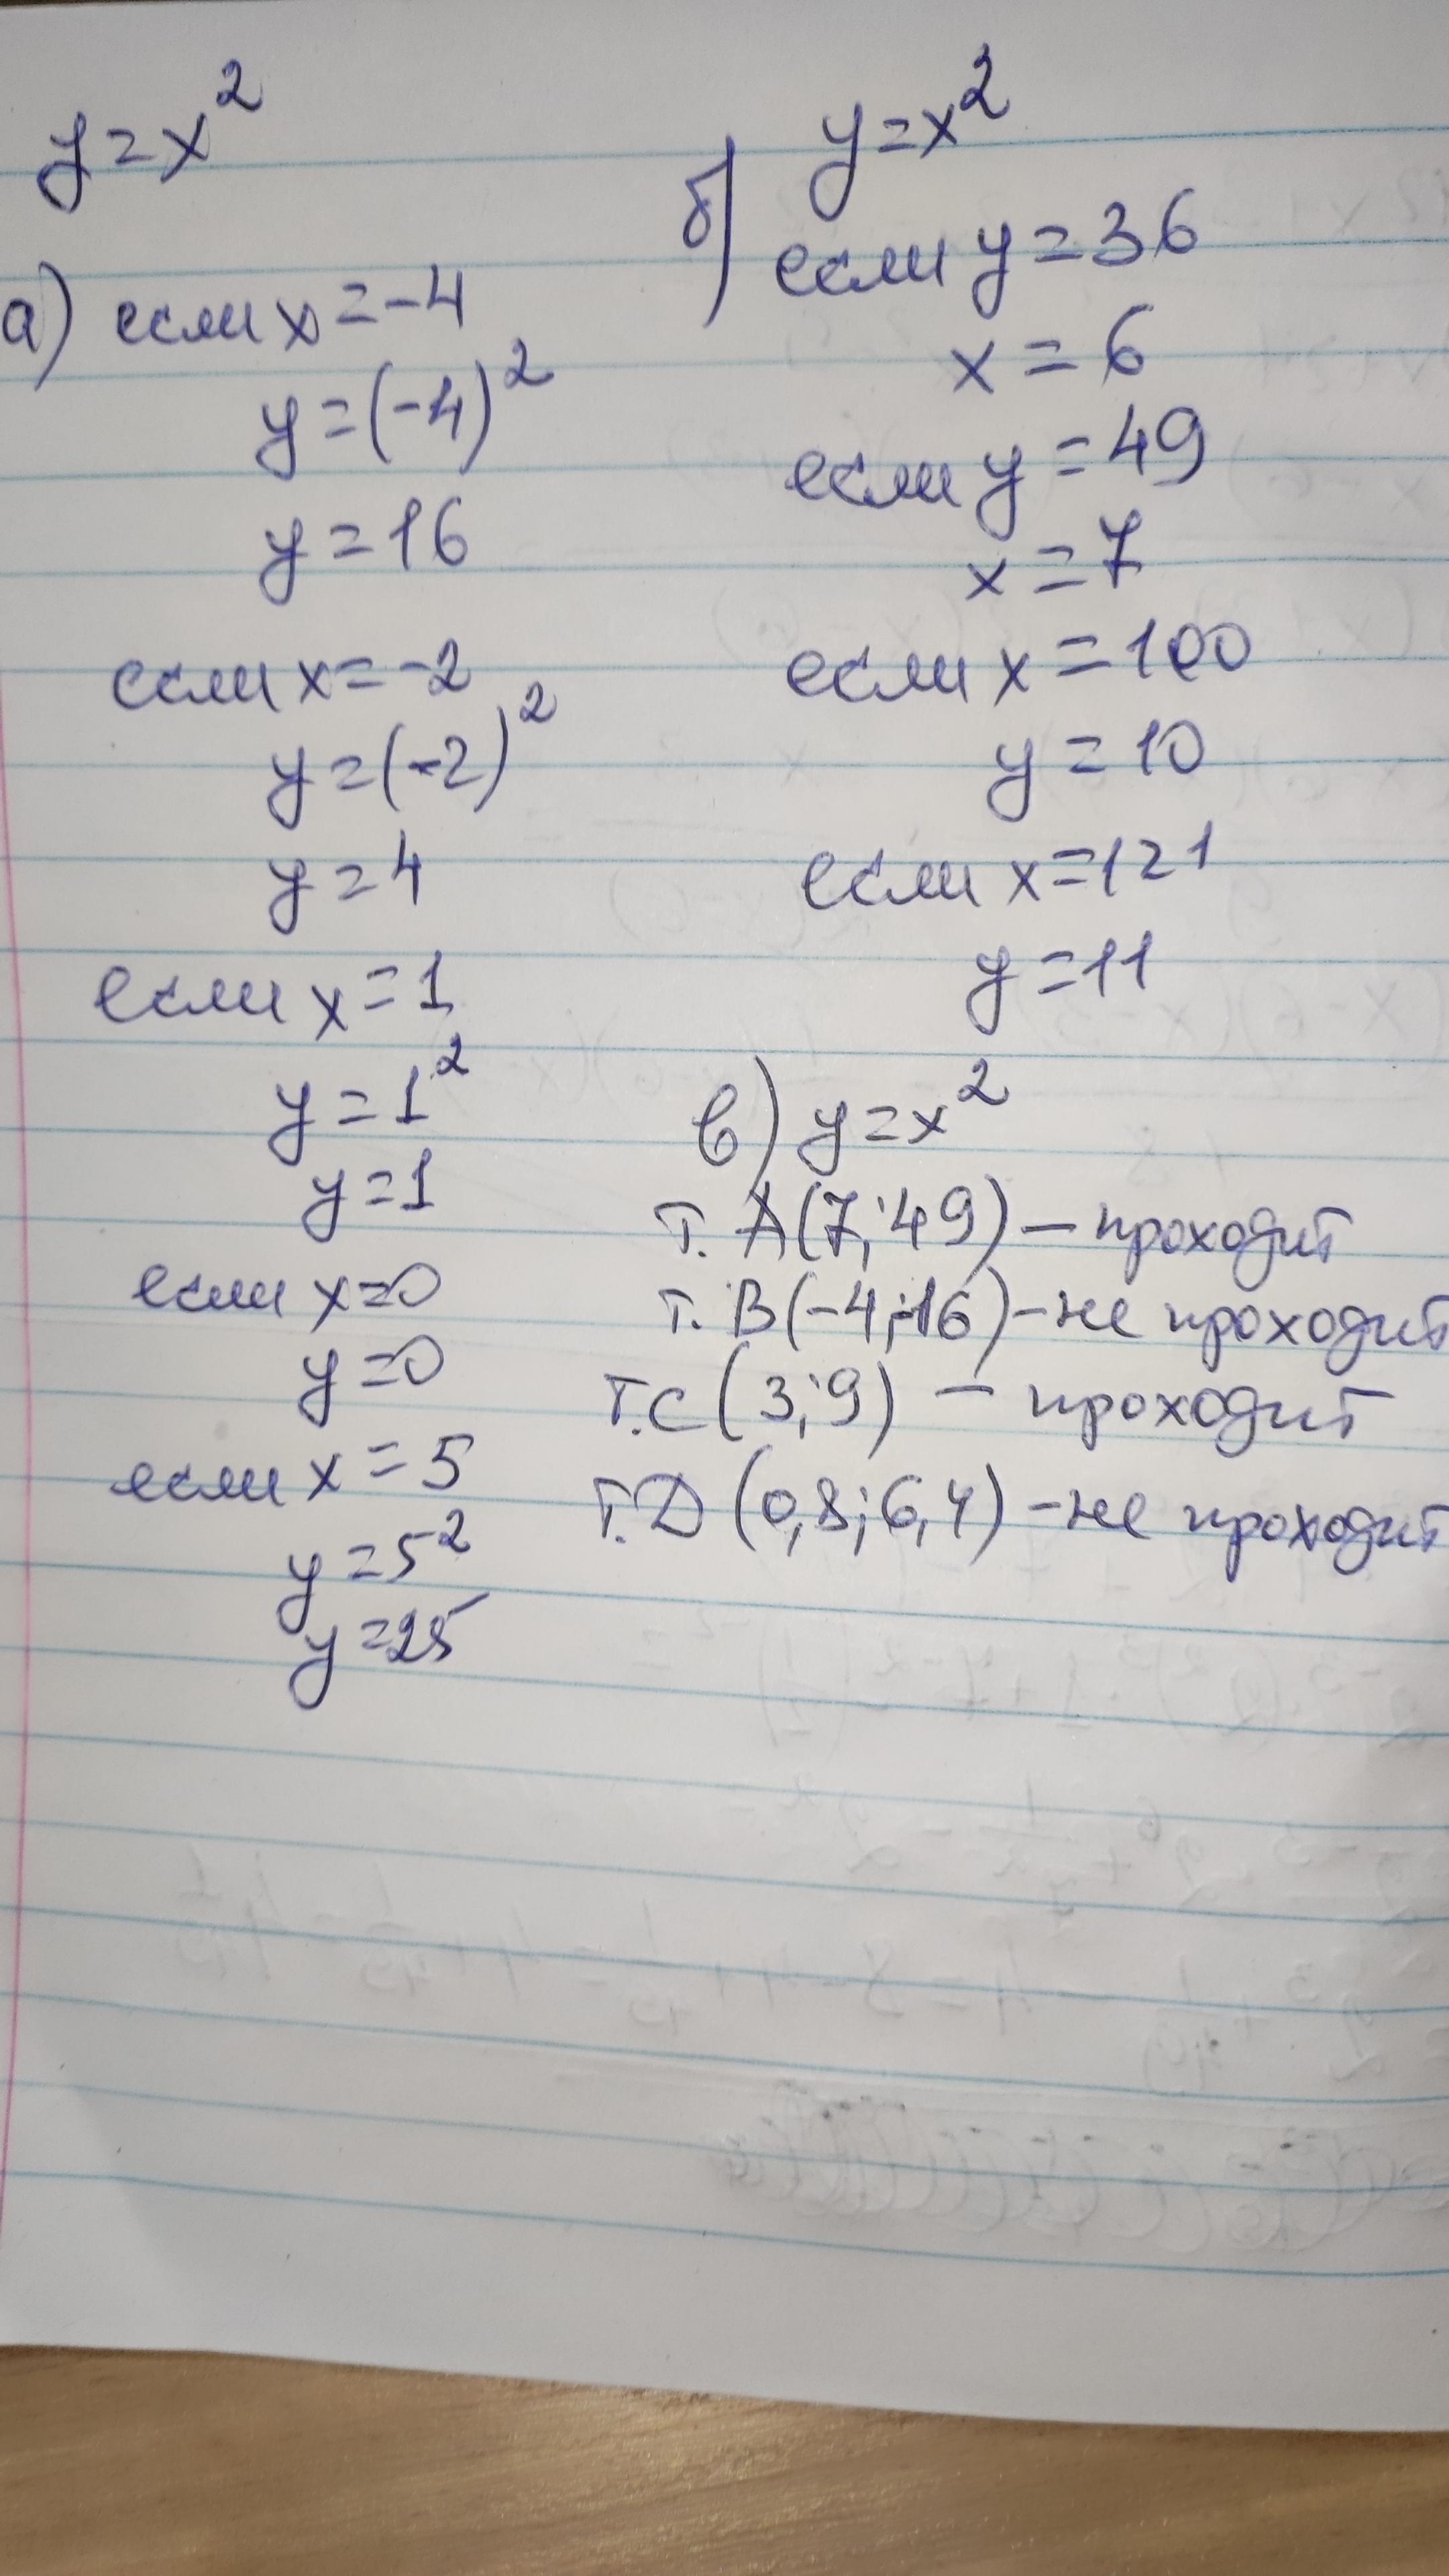 y=x²
а) если x=-4
y=(-4)²
y=16
если x=-2
y=(-2)²
y=4
если x=1
y=1²
y=1
если x=0
y=0
если x=5
y=5²
y=25
б) y=x²
если y=36
x=6
если y=49
x=7
если x=100
y=10
если x=121
y=11
в) y=x²
т. A(7;49) – проходит
т. B(-4;-16) – не проходит
т. C (3;9) – проходит
т. D (0,8;6,4) – не проходит